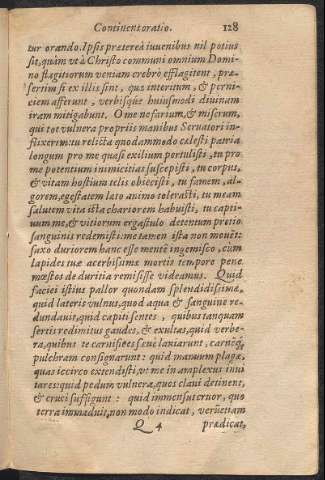 Continent oratio. 128
tur orando. Ipsis præterea iuuenibus nil potius
sit, quàm vt à Christo communi omnium Domi-
no flagitiorum veniam crebrò efflagitent, præ-
sertim si ex illis sint, quæ interitum, & perni-
ciem afferunt, verbisque huiusmodi diuinam
iram mitigabunt. O me nefarium, & miserum,
qui tot vulnera proprijs manibus Seruatori in-
flixerim: tu relicta quodammodo cælesti patria
longum pro me quasi exilium portulisti, tu pro
me potentium inimicitias suscepisti, tu corpus,
& vitam hostium telis obiecisti, tu famem, al-
gorem, egestatem lato animo tolerasti, tu meam
salutem vita ista chariorem habuisti, tu capti-
uum me, & vitiorum ergastulo detentum pretio
sanguinis redemisti: me tamen ista non mouēt:
saxo duriorem hanc esse mentē ingemisco, cùm
lapides tuæ acerbissimæ mortis tempore pene
mœstos de duritia remisisse videamus. Quid
faciei istius pallor quondam splendidissimæ,
quid lateris vulnus, quod aqua & sanguine re-
dundauit, quid capiti sentes, quibus tanquam
sertis redimitus gaudes, & exultas, quid verbe-
ra, quibus te carnifices sæuè laniarunt, carnēq;
pulchram consignarunt: quid manuum plagæ,
quas iccirco extendisti, vt me in amplexus inui
tares: quid pedum vulnera, quos claui detinent,
& cruci suffigunt: quid immensus cruor, quo
terra immaduit, non modo indicat, verùm etiam
Q 4 prædicat,